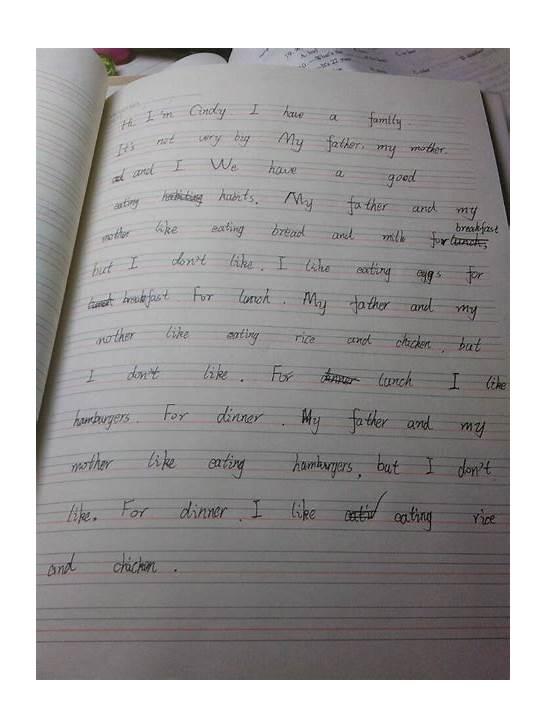 Hi I'm Cindy I have a family.
It's not very big My father, my mother.
and I We have a good
eating habits. My father and my
mother like eating bread and milk for breakfast
but I don't like. I like eating eggs for
breakfast For lunch. My father and my
mother like eating rice and chicken, but
I don't like. For lunch I like
hamburgers. For dinner. My father and my
mother like eating hamburgers, but I don't
like. For dinner. I like eating rice
and chicken.